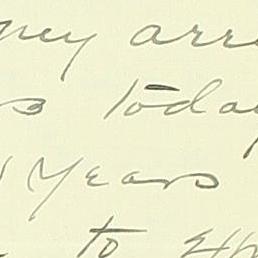 ney arri
s today
years
to